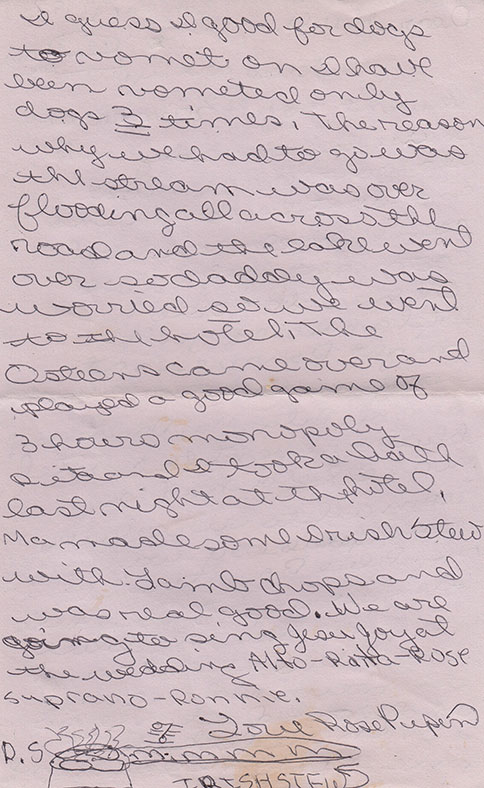 I guess I good for dogs
to vomet on I have
been vometed on by
dogs 3 times. The reason
why we had to go was
the stream was over
flooding all across the
road and the lake went
over so daddy was
worried so we went
to the hotel. The
Osteens came over and
played a good game of
3 hours monopoly
and I took a bath
last night at the hotel.
Ma made some Irish Stew
with Lamb chops and
was real good. We are
going to sing Jesu Joy at
the wedding Alto-Ritta-Rose
suprano-Ronnie.
Love Rose
P.S. mmmmm
IRISH STEW